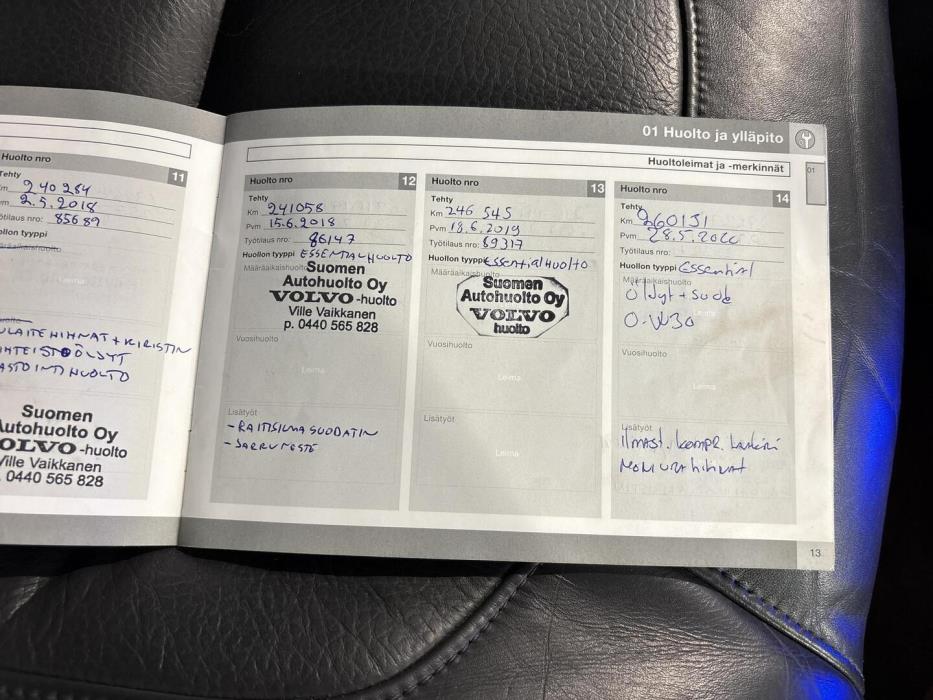 01 Huolto ja ylläpito
Huoltoleimat ja -merkinnät
01
Huolto nro
11
Tehty
240 284
2.5.2018
Työtilaus nro: 85689
Huollon tyyppi
Määräaikaishuolto
HIHNAT + KIRISTIN
Suomen
Autohuolto Oy
VOLVO -huolto
Ville Vaikkanen
0440 565 828
Huolto nro
12
Tehty
Km 241058
Pvm 15.6.2018
Työtilaus nro: 86147
Huollon tyyppi ESSENTIAL HUOLTO
Määräaikaishuolto
Suomen
Autohuolto Oy
VOLVO -huolto
Ville Vaikkanen
p. 0440 565 828
Vuosihuolto
Leima
Lisätyöt
- RAITISILMASUODATIN
- JARRUNESTE
Huolto nro
13
Tehty
Km 246 545
Pvm 18.6.2019
Työtilaus nro: 89317
Huollon tyyppi Essential Huolto
Määräaikaishuolto
Suomen
Autohuolto Oy
VOLVO
huolto
Vuosihuolto
Leima
Lisätyöt
Leima
Huolto nro
14
Tehty
Km 260131
Pvm 28.5.
Työtilaus nro:
Huollon tyyppi Essential
Määräaikaishuolto
Öljyt + suod
Leima
0-W30
Vuosihuolto
Leima
Lisätyöt
Ilmast. kompr.
MONIURAhihnat
13